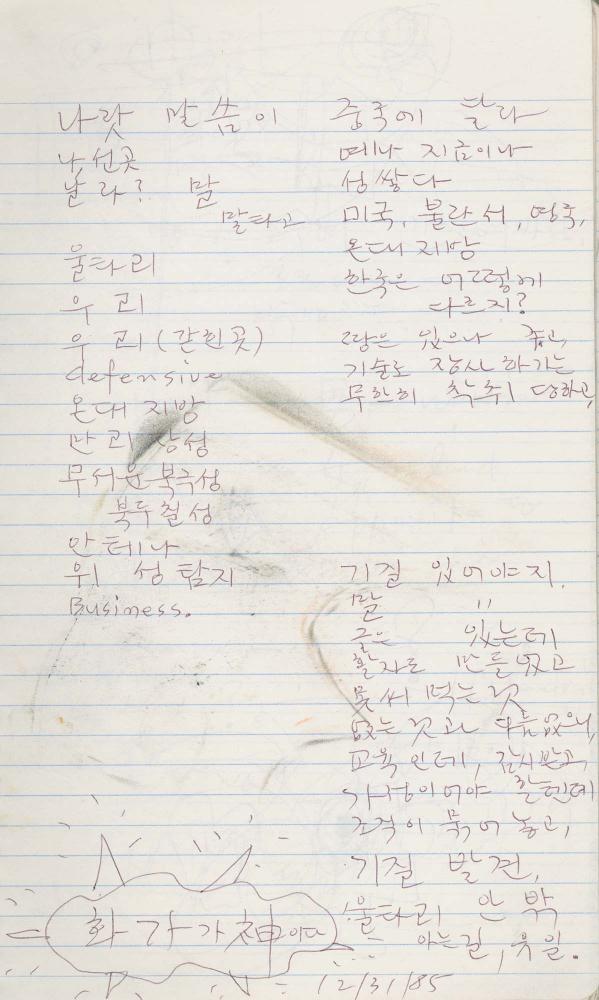 나랏 말씀이
나, 선곳
날라? 말
말타고
울타리
우 리
우 리 (간힌곳)
defensive
온대 지방
만리 장성
무서운 북극성
북두칠성
안테나
위 성 탐지
Business.
화가가 神이다
중국에 달라
예나 지금이나
성쌓다
미국, 불란서, 영국,
온대 지방
한국은 어떻게
다르지?
땅은 있으나 좁고,
기술로 장사 하기는
무한히 착취 당하고,
기질 있어야지.
말 "
글은 있는데
활자로 만들었고
못써 먹는 것
없는 것과 다름없으니,
교육 인데, 감시받고,
가정이어야 할텐데
조직이 묶어 놓고,
기질 발견,
울타리 안 밖
아는길, 유일.
12/31/85